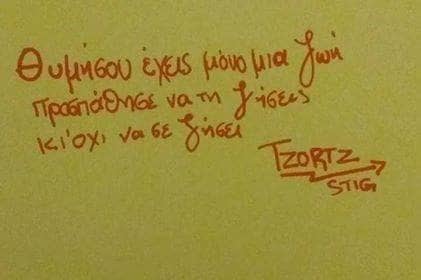 Θυμήσου έχεις μόνο μια ζωή
Προσπάθησε να τη ζήσεις
κι' όχι να σε ζήσει
TZORTZ
STIG